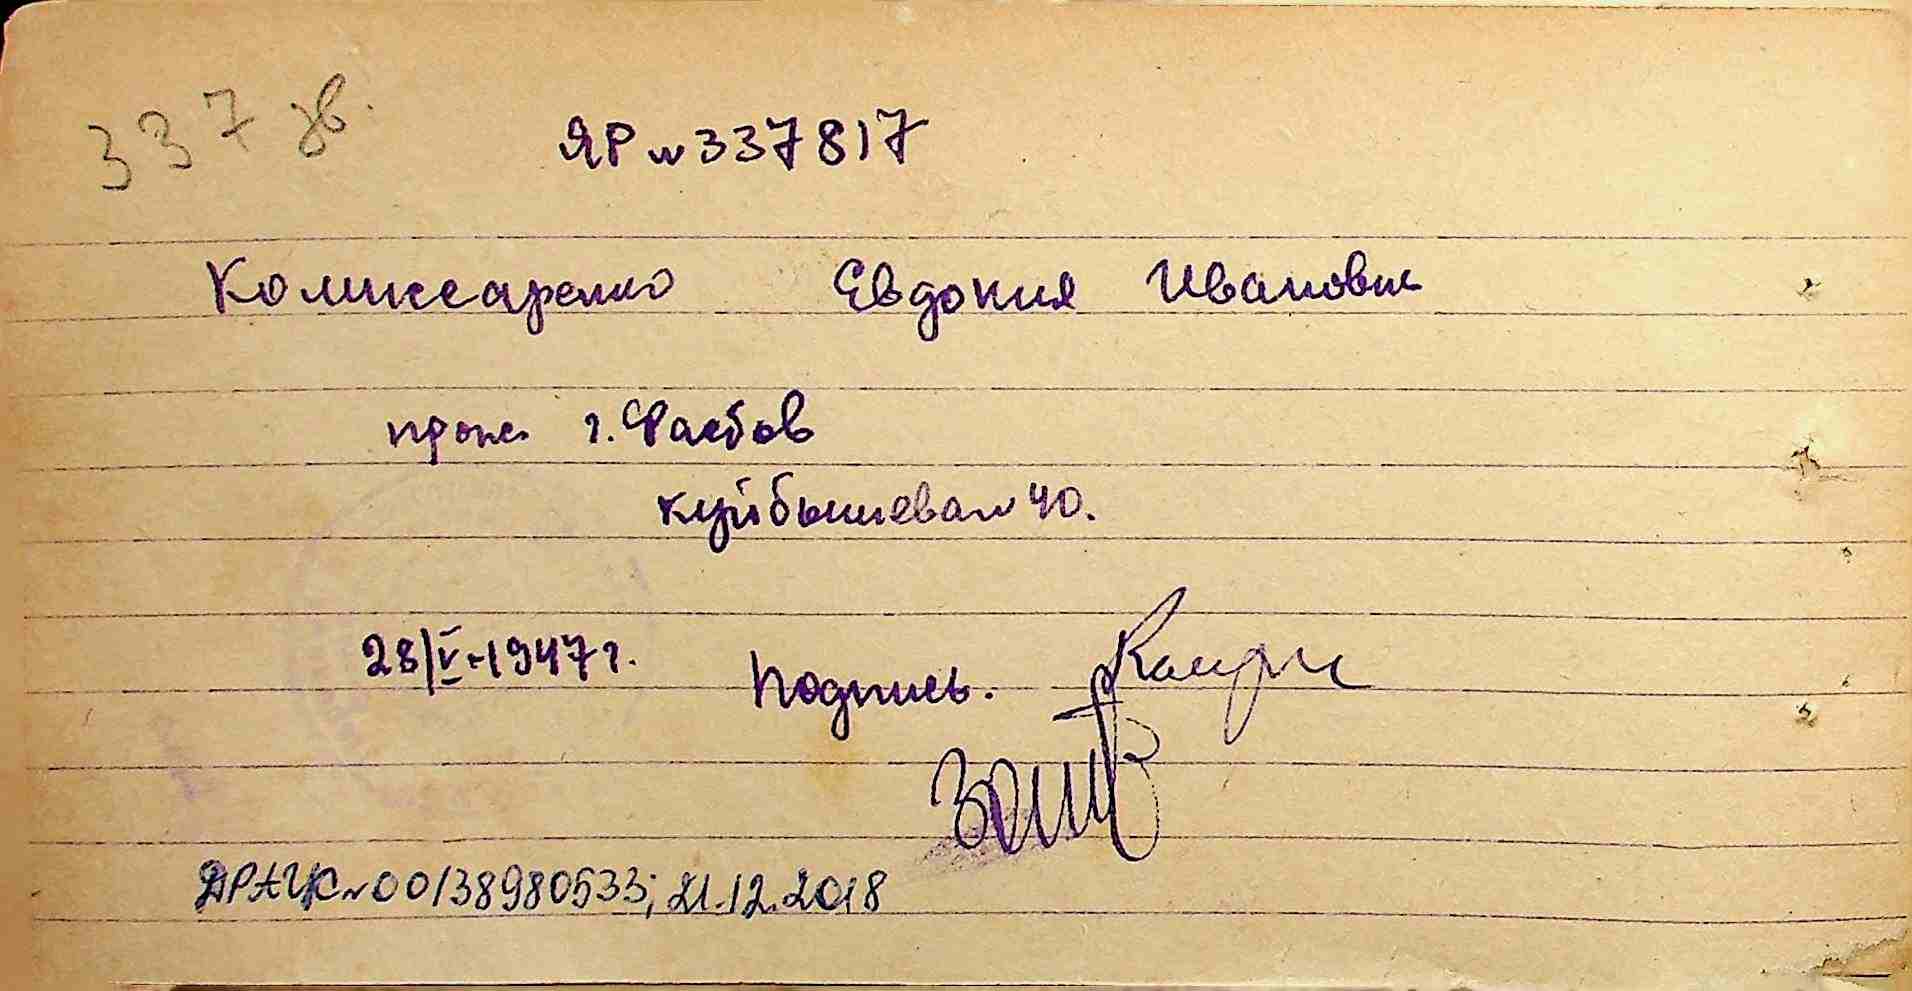 337 зв.
ЯР № 337817
Комиссаренко Евдокия Ивановна
прож. г. Фастов
Куйбышева № 40.
28/V-1947 г.
Подпись.
ДРАЦС № 00138980533; 21.12.2018